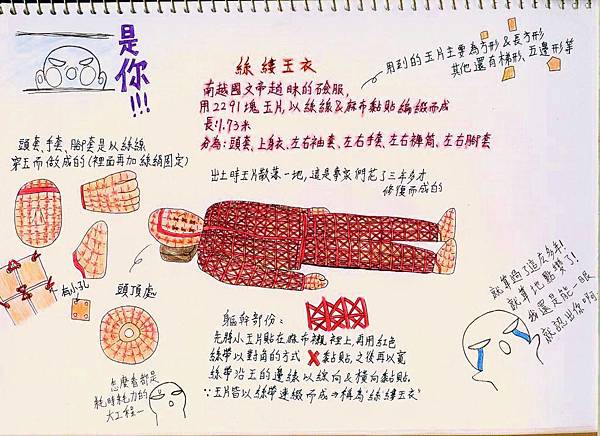 是你!!!
絲縷玉衣
南越國文帝趙眜的殮服,
用2291塊玉片,以絲線&麻布黏貼編綴而成
長1.73米
分為:頭套、上身衣、左右袖套、左右手套、左右褲筒、左右腳套
用到的玉片主要為方形&長方形
其他還有梯形、五邊形等
出土時玉片散落一地,這是專家們花了三年多才
修復而成的
頭套、手套、腳套是以絲線
穿玉而做成的(裡面再加絲絹固定)
有小孔
頭頂處
軀幹部份:
先將小玉片貼在麻布襯裡上,再用紅色
絲帶以對角的方式 黏貼,之後再以寬
絲帶沿玉的邊緣以縱向&橫向黏貼。
∵玉片皆以絲帶連綴而成→稱為"絲縷玉衣"
怎麼看都是
耗時耗力的
大工程~
就算過了這麼多年!
就算地點變了!
我還是能一眼
就認出你啊